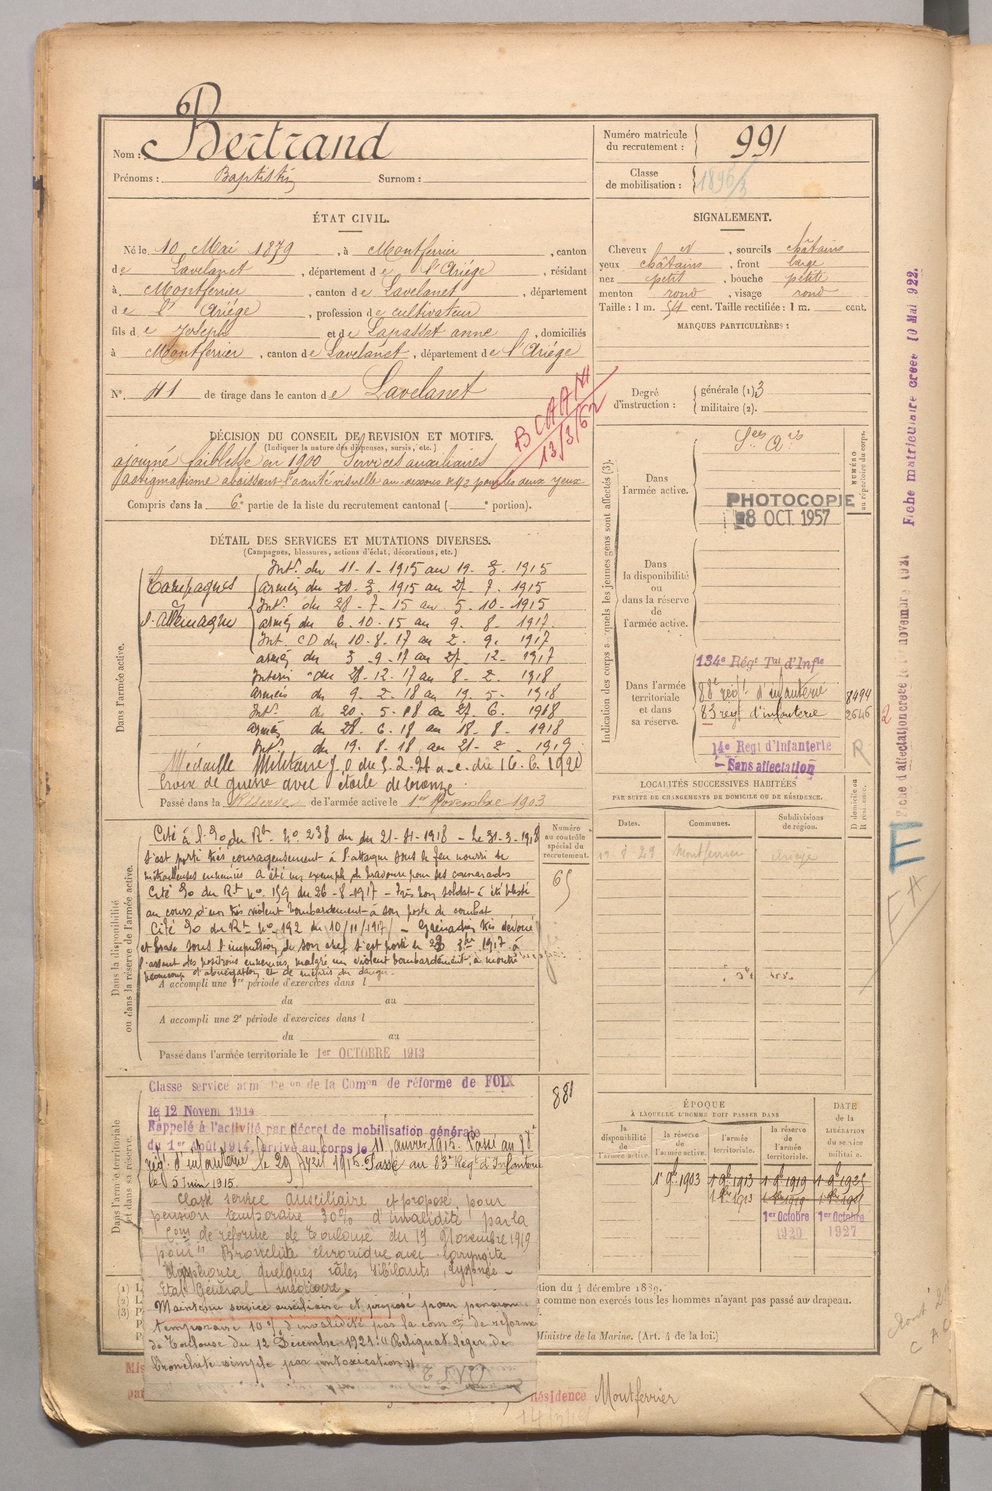 Nom : Bertrand
Prénoms : Baptistin Surnom :
Numéro matricule du recrutement : 991
Classe de mobilisation : 1896/3
ÉTAT CIVIL.
Né le 10 Mai 1879, à Montferrier, canton
de Lavelanet, département de l'Ariège, résidant
à Montferrier, canton de Lavelanet, département
de l'Ariège, profession de cultivateur
fils de Joseph et de Lapasset anne, domiciliés
à Montferrier, canton de Lavelanet, département de l'Ariège
N° 41 de tirage dans le canton de Lavelanet
SIGNALEMENT.
Cheveux n, sourcils châtains
yeux châtains, front large
nez petit, bouche petite
menton rond, visage rond
Taille : 1 m. 54 cent. Taille rectifiée : 1 m. cent.
MARQUES PARTICULIÈRES :
Degré d'instruction : générale (1) 3
militaire (2).
BCAAM
13/3/62
DÉCISION DU CONSEIL DE REVISION ET MOTIFS.
(Indiquer la nature des dispenses, sursis, etc.)
ajourné faiblesse en 1900 Services auxiliaires
astigmatisme abaissant l'acuité visuelle au-dessous de 1/2 pour les deux yeux
Compris dans la 6e partie de la liste du recrutement cantonal ( e portion).
DÉTAIL DES SERVICES ET MUTATIONS DIVERSES.
(Campagnes, blessures, actions d'éclat, décorations, etc.)
Dans l'armée active.
Campagnes
Intr. du 11-1-1915 au 19-3-1915
armées du 20-3-1915 au 27-7-1915
Intr. du 28-7-15 au 5-10-1915
armées du 6-10-15 au 9-8-1917
Int. CD du 10-8-17 au 2-9-1917
armées du 3-9-17 au 27-12-1917
Interr du 28-12-17 au 8-2-1918
armées du 9-2-18 au 19-5-1918
Intr. du 20-5-18 au 27-6-1918
armées du 28-6-18 au 18-8-1918
Intr. du 19-8-18 au 21-2-1919
Médaille Militaire J.O du
Croix de guerre avec étoile de bronze
Passé dans la Réserve de l'armée active le 1er Novembre 1903
Dans la disponibilité ou dans la réserve de l'armée active.
Cité à l'O. du Rt. No 238 du
s'est porté très courageusement à l'attaque sous le feu nourri de
mitrailleuses ennemies a été un exemple de bravoure pour ses camarades
Cité O. du Rt No. 159 du 26-8-1917 - Très bon soldat - à été blessé
au cours d'un très violent bombardement à son poste de combat
Cité O. du Rt No. 192 du 10/11/1917 - Grenadier très dévoué
l'assaut des positions ennemies, malgré un violent bombardement, a montré
beaucoup d'abnégation et de mépris du danger
A accompli une 1re période d'exercices dans l
du au
A accompli une 2e période d'exercices dans l
du au
Passé dans l'armée territoriale le 1er OCTOBRE 1913
Numéro au contrôle spécial du recrutement.
65
881
Dans l'armée territoriale et dans sa réserve.
Classé service armé de la Comon de réforme de FOIX
le 12 Novem 1914
Rappelé à l'activité par décret de mobilisation générale
du 1er Août 1914, arrivé au corps le 11 janvier 1915. Passé au
régt. d'infanterie le 29 avril 1915. Passé au 83e Régt d'Infanterie
le 5 juin 1915.
Classé service auxiliaire et proposé pour
pension temporaire 30% d'invalidité par la
Com de réforme de Toulouse du 19 Novembre 1919
pour " Bronchite chronique avec laryngite
quelques râles sibilants,
Etat Général médiocre.
Maintenu service auxiliaire et proposé pour pension
temporaire 10% d'invalidité par la com on de réforme
de Toulouse du 12 Décembre 1921 : "Reliquat léger de
Bronchite simple par intoxication".
Indication des corps auxquels les jeunes gens sont affectés (3).
Dans l'armée active.
Ses Ares
PHOTOCOPIE
8 OCT. 1957
NUMÉRO au répertoire du corps.
Dans la disponibilité ou dans la réserve de l'armée active.
Dans l'armée territoriale et dans sa réserve.
134e Régt Tal d'Infie
88e régt d'infanterie 8494
83 régt d'infanterie 2646
14e Regt d'Infanterie
Sans affectation
R
LOCALITÉS SUCCESSIVES HABITÉES
PAR SUITE DE CHANGEMENTS DE DOMICILE OU DE RÉSIDENCE.
Dates. Communes. Subdivisions de région. D domicile ou R résidence.
Montferrier
ÉPOQUE
À LAQUELLE L'HOMME DOIT PASSER DANS
la disponibilité de l'armée active. la réserve de l'armée active. l'armée territoriale. la réserve de l'armée territoriale.
DATE de la LIBÉRATION du service militaire.
1er 9bre 1903
1er Octobre 1920
1er Octobre 1927
tion du 4 décembre 1889.
a comme non exercés tous les hommes n'ayant pas passé au drapeau.
Ministre de la Marine. (Art. 4 de la loi.)
Résidence Montferrier
Fiche matriculaire créée 10 Mai 922.
Fiche d'affectation créée le novembre 1931
2
E